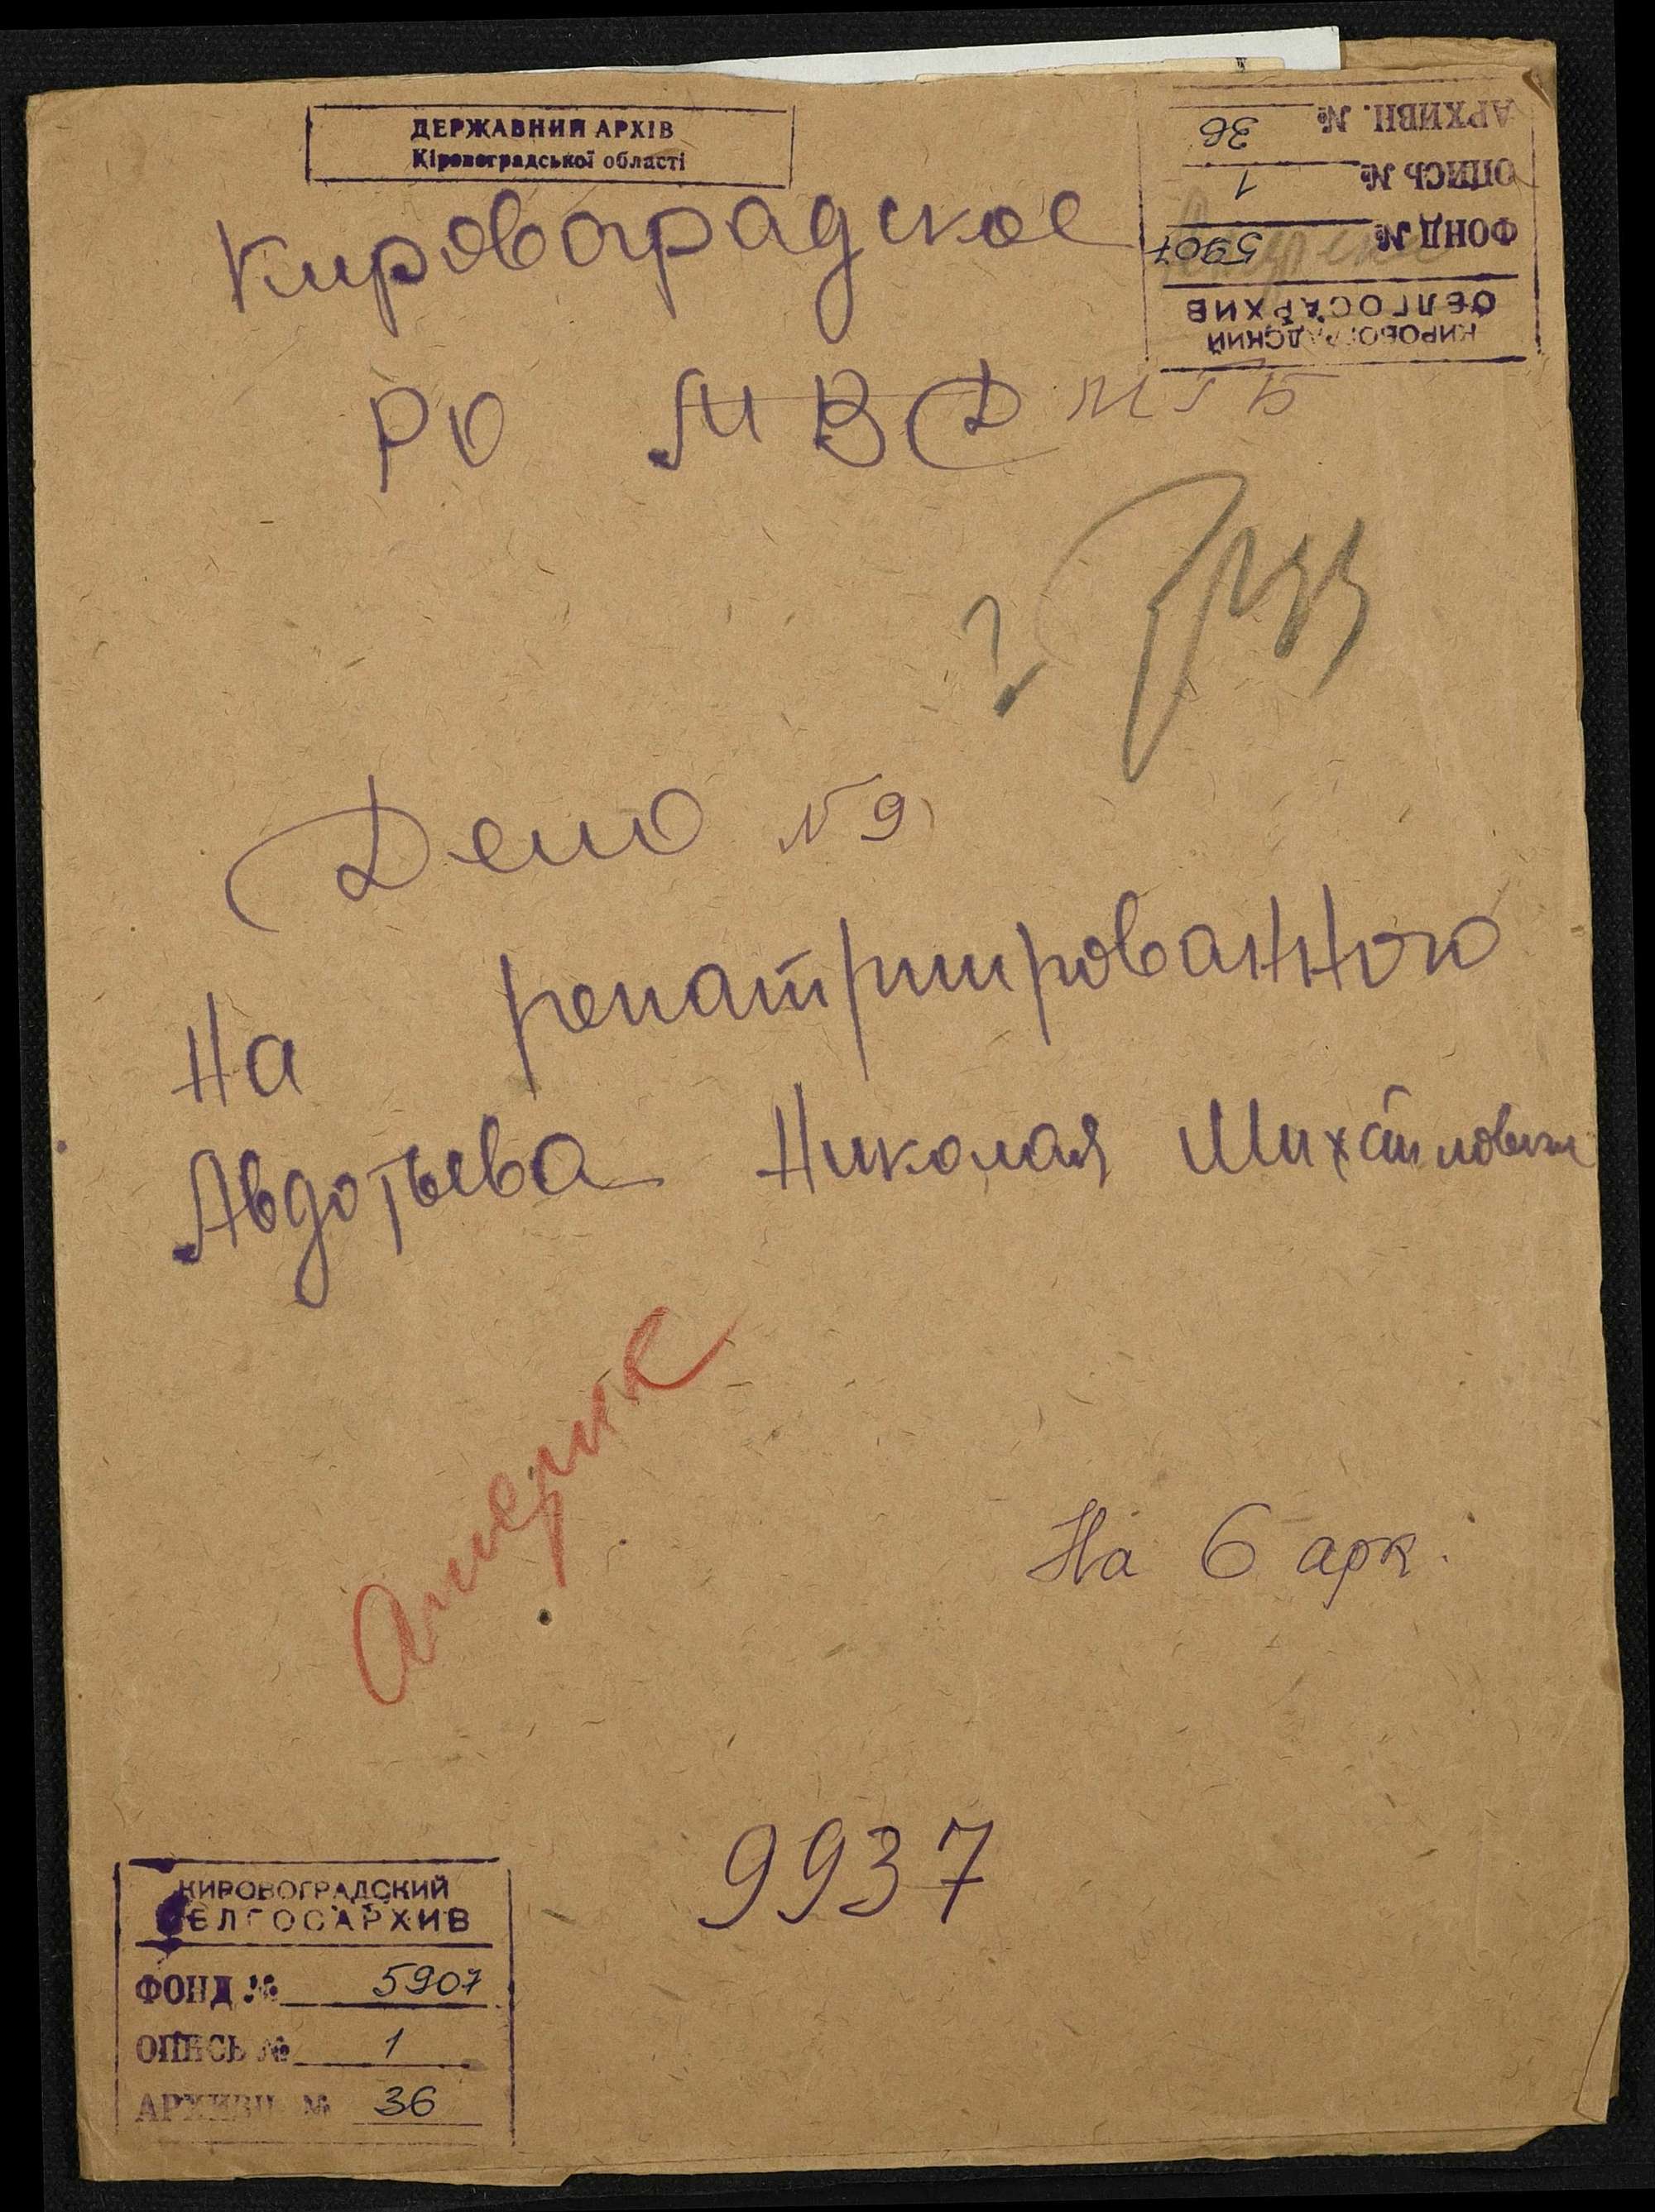 ДЕРЖАВНИЙ АРХІВ
Кіровоградської області
КИРОВОГРАДСКИЙ
ОБЛГОСАРХИВ
ФОНД № 5907
ОПИСЬ № 1
АРХИВН. № 36
Кировоградское
РО МВД МГБ
Дело № 9
на репатриированного
Авдотьева Николая Михайловича
Америк
На 6 арк.
9937
КИРОВОГРАДСКИЙ
ОБЛГОСАРХИВ
ФОНД № 5907
ОПИСЬ № 1
АРХИВН. № 36